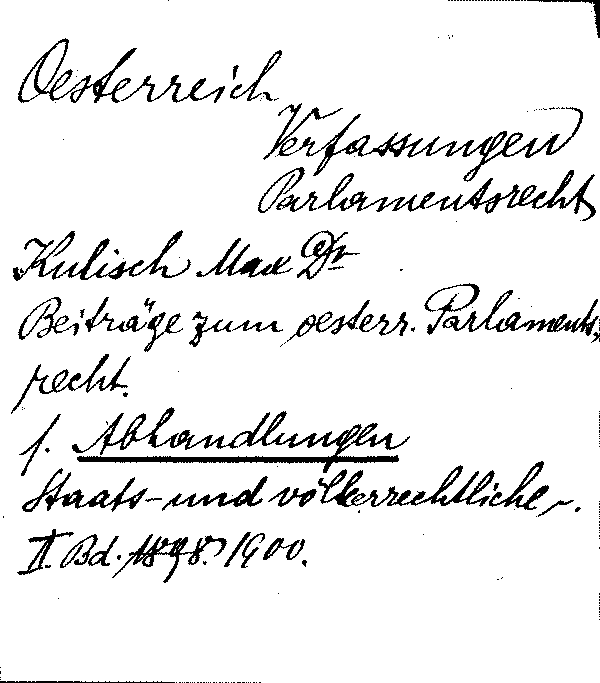 Oesterreich
Verfassungen
Parlamentsrecht
Kulisch Max Dr
Beiträge zum oesterr. Parlaments-
recht.
s. Abhandlungen
Staats- und völkerrechtliche ~.
II. Bd. 1898. 1900.